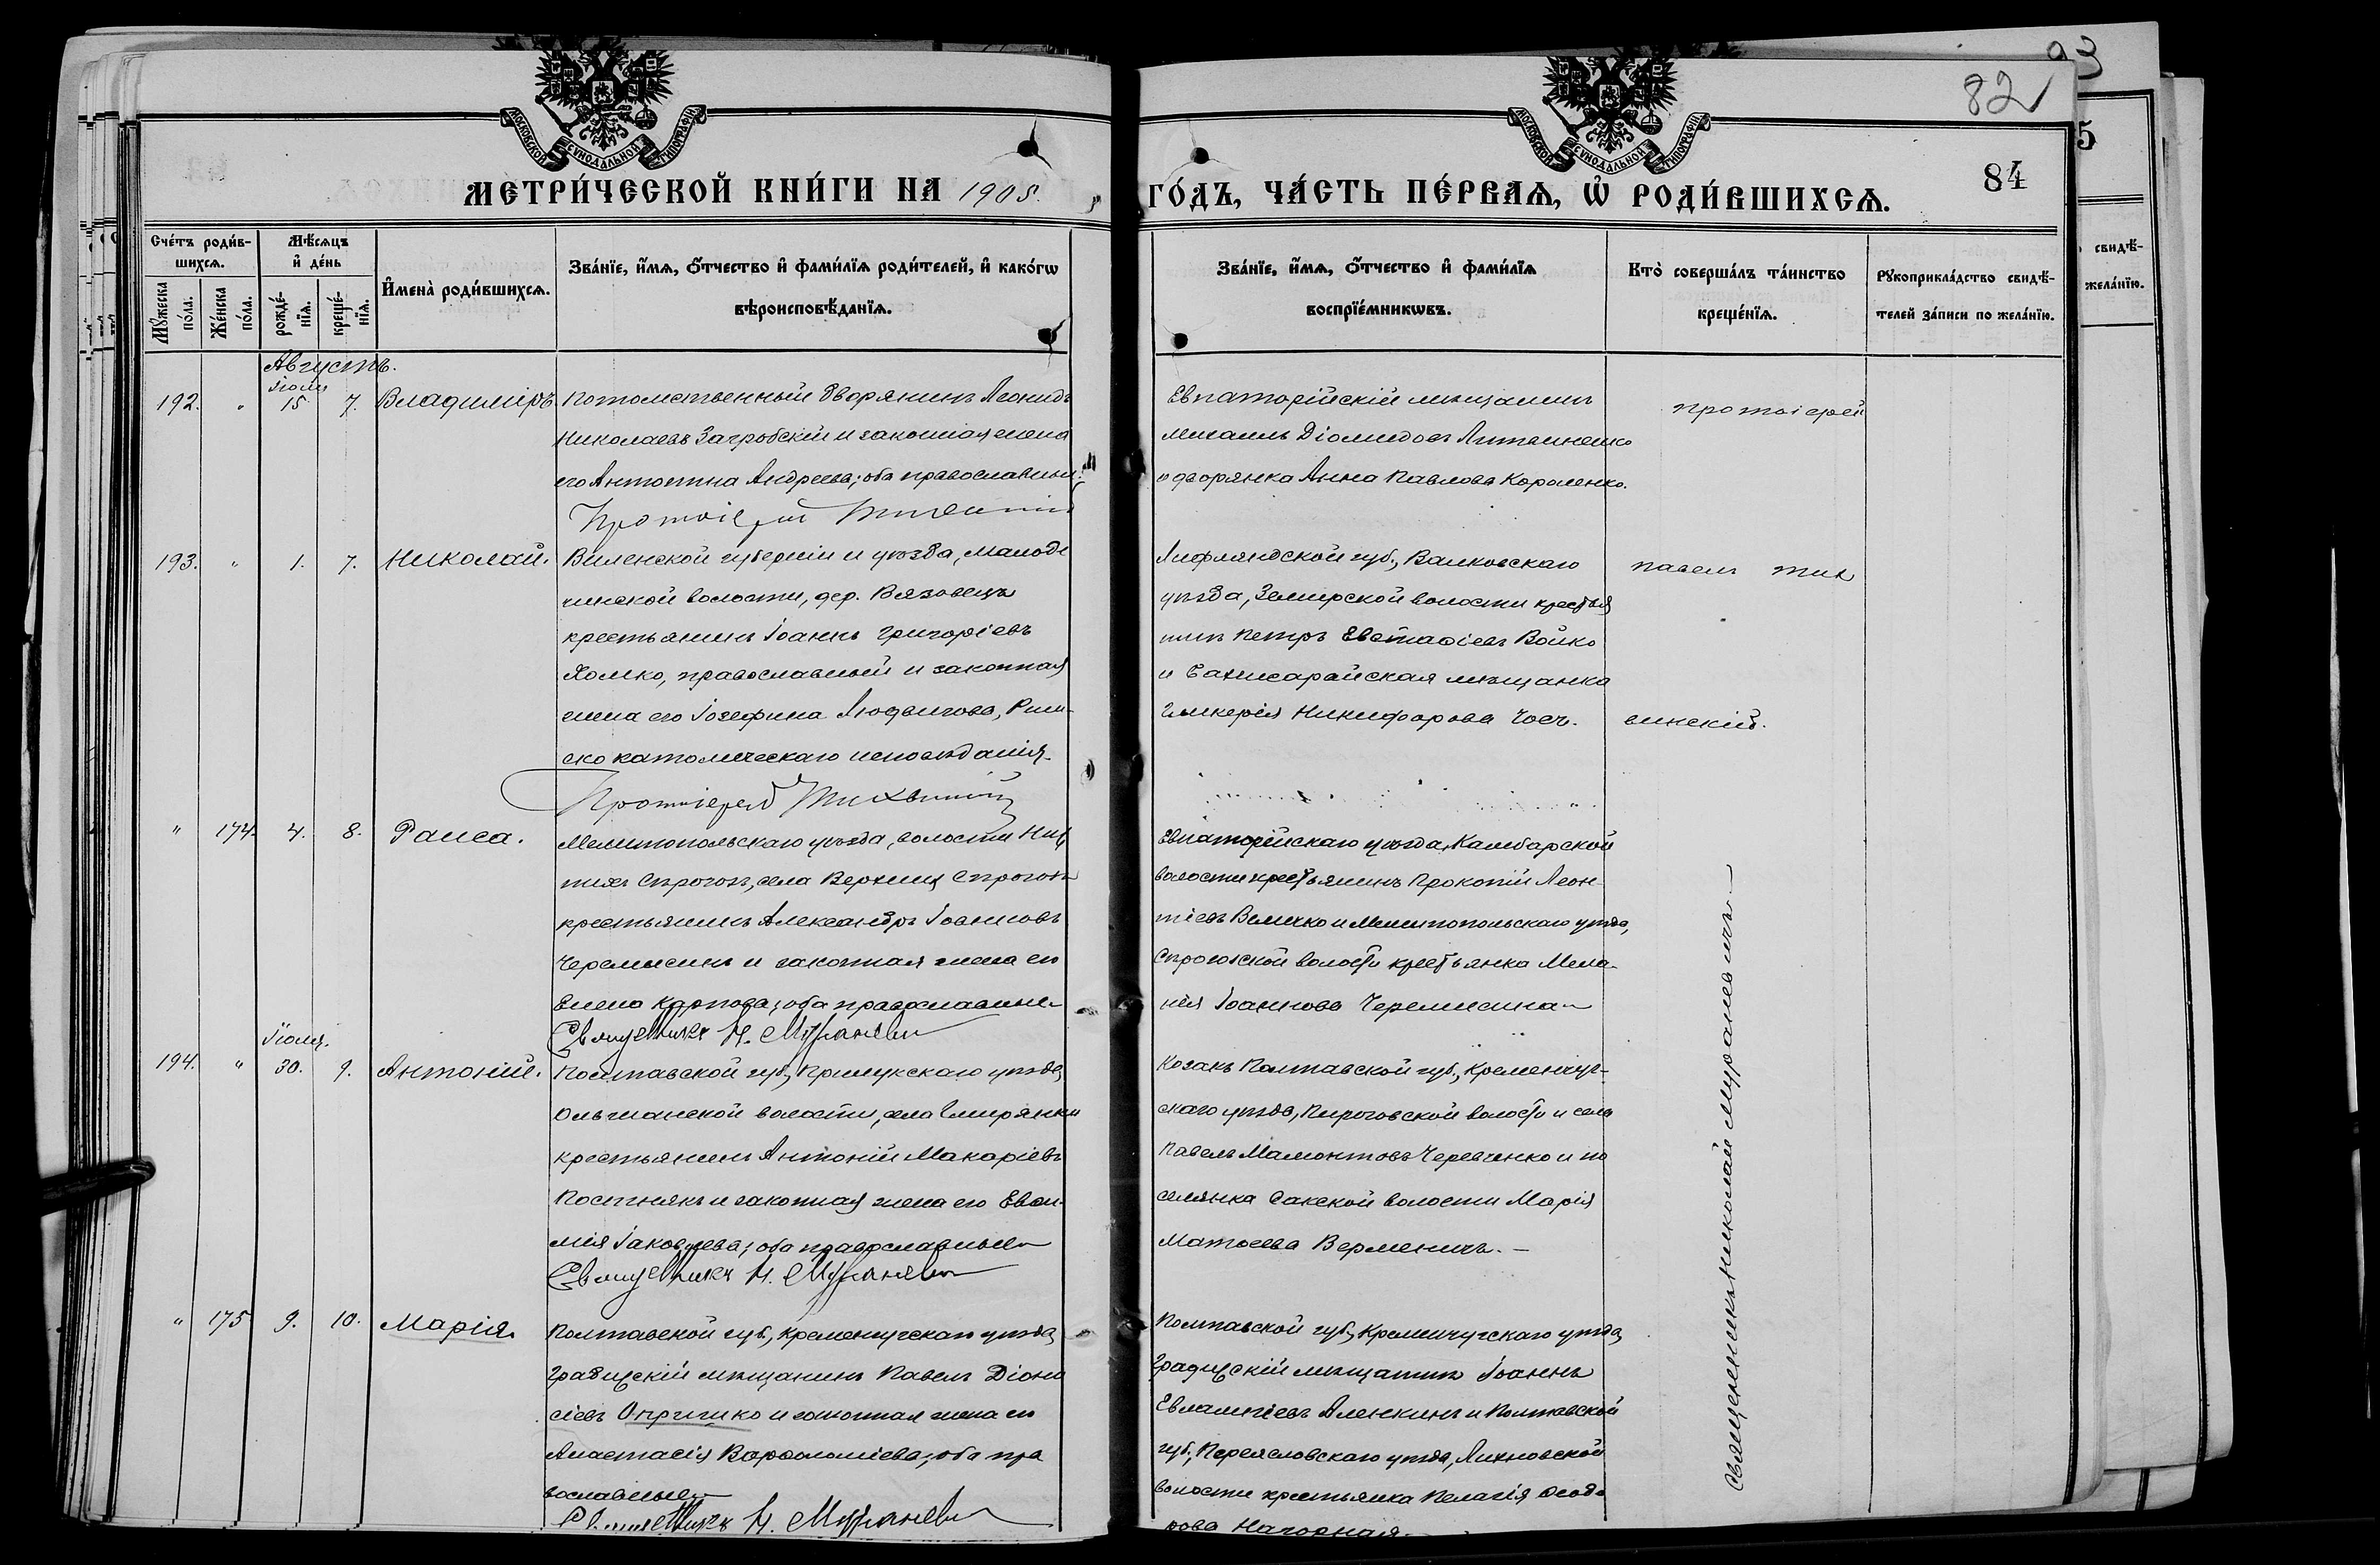 93
82
МОСКОВСКОЙ СѴНОДАЛЬНОЙ ТИПОГРАФІИ
МОСКОВСКОЙ СѴНОДАЛЬНОЙ ТИПОГРАФІИ
84
5
МЕТРИ́ЧЕСКОЙ КНИ́ГИ НА 1908.
ГО́ДЪ, ЧА́СТЬ ПЕ́РВАѦ, Ѡ҆ РОДИ́ВШИХСѦ.
Сче́тъ роди́в-
шихсѧ.
Мꙋ́жеска по́ла.
Же́нска по́ла.
Мѣ́сѧцъ
и҆ де́нь
рожде́-
нїѧ.
креще́-
нїѧ.
И҆мена̀ роди́вшихсѧ.
Зва́нїе, и҆́мѧ, ѻ҆́тчество и҆ фами́лїѧ роди́телей, и҆ како́гѡ
вѣроисповѣ́данїѧ.
Зва́нїе, и҆́мѧ, ѻ҆́тчество и҆ фами́лїѧ
воспрїе́мникѡвъ.
Кто̀ соверша́лъ та́инство
креще́нїѧ.
Рꙋкоприкла́дство свидѣ́-
телей за́писи по жела́нїю.
свидѣ́-
жела́нїю.
Августъ.
Іюля
192. " 15 7. Владиміръ.
Потомственный дворянинъ Леонидъ
Николаевъ Загробскій и законная жена
его Антонина Андреева; оба православные.
Протоіерей Тихвинскій
Евпаторійскій мѣщанинъ
Михаилъ Діомидовъ
и дворянка Анна Павлова Короленко.
протоіерей
193. " 1. 7. Николай.
Виленской губерніи и уѣзда, Молоде
чинской волости, дер. Вязовецъ
крестьянинъ Іоаннъ Григоріевъ
Хомко, православный и законная
жена его Іозефина Людвигова, Рим-
ско католическаго исповѣданія.
Протоіерей Тихвинскій
Лифляндской губ., Валковскаго
уѣзда, волости крестья
нинъ Петръ Евстафіевъ Войко
и Бахчисарайская мѣщанка
Гликерія Никифорова
Павелъ Тих
винскій.
" 174. 4. 8. Раиса.
Мелитопольскаго уѣзда, волости Ниж
нихъ Сѣрогозъ, села Верхних Сѣрогозъ
крестьянинъ Александръ Іоанновъ
Черемисинъ и законная жена его
Елена Карпова; оба православные
Священникъ Н. Мураневич
Евпаторійскаго уѣзда, Камбарской
волости крестьянинъ Прокопій Леон
тіевъ Величко и Мелитопольскаго уѣзда,
Сѣрогозской волости крестьянка Мела-
нія Іоаннова Черемисина
Іюля.
194. " 30. 9. Антоній.
Полтавской губ., Прилукскаго уѣзда,
Ольшанской волости, села
крестьянинъ Антоній Макаріевъ
Постнякъ и законная жена его Евфи-
мія Іаковлева; оба православные
Священникъ Н. Мураневич
Козакъ Полтавской губ., Кременчуг-
скаго уѣзда, Пироговской волости и села
Павелъ Мамонтовъ Черевченко и по
селянка Сакской волости Марія
Матѳеева Верменичъ. —
" 175 9. 10. Марія.
Полтавской губ., Кременчугскаго уѣзда,
Градижскій мѣщанинъ Павелъ Діони
сіевъ Опришко и законная жена его
Анастасія Варѳоломіева; оба пра
вославные
Священникъ Н. Мураневич
Полтавской губ., Кременчугскаго уѣзда,
Градижскій мѣщанинъ Іоаннъ
Евлампіевъ Аленкинъ и Полтавской
губ., Переясловскаго уѣзда,
волости крестьянка Пелагія Ѳеодо
рова Нагорная.
Священникъ Николай Мураневичъ. —